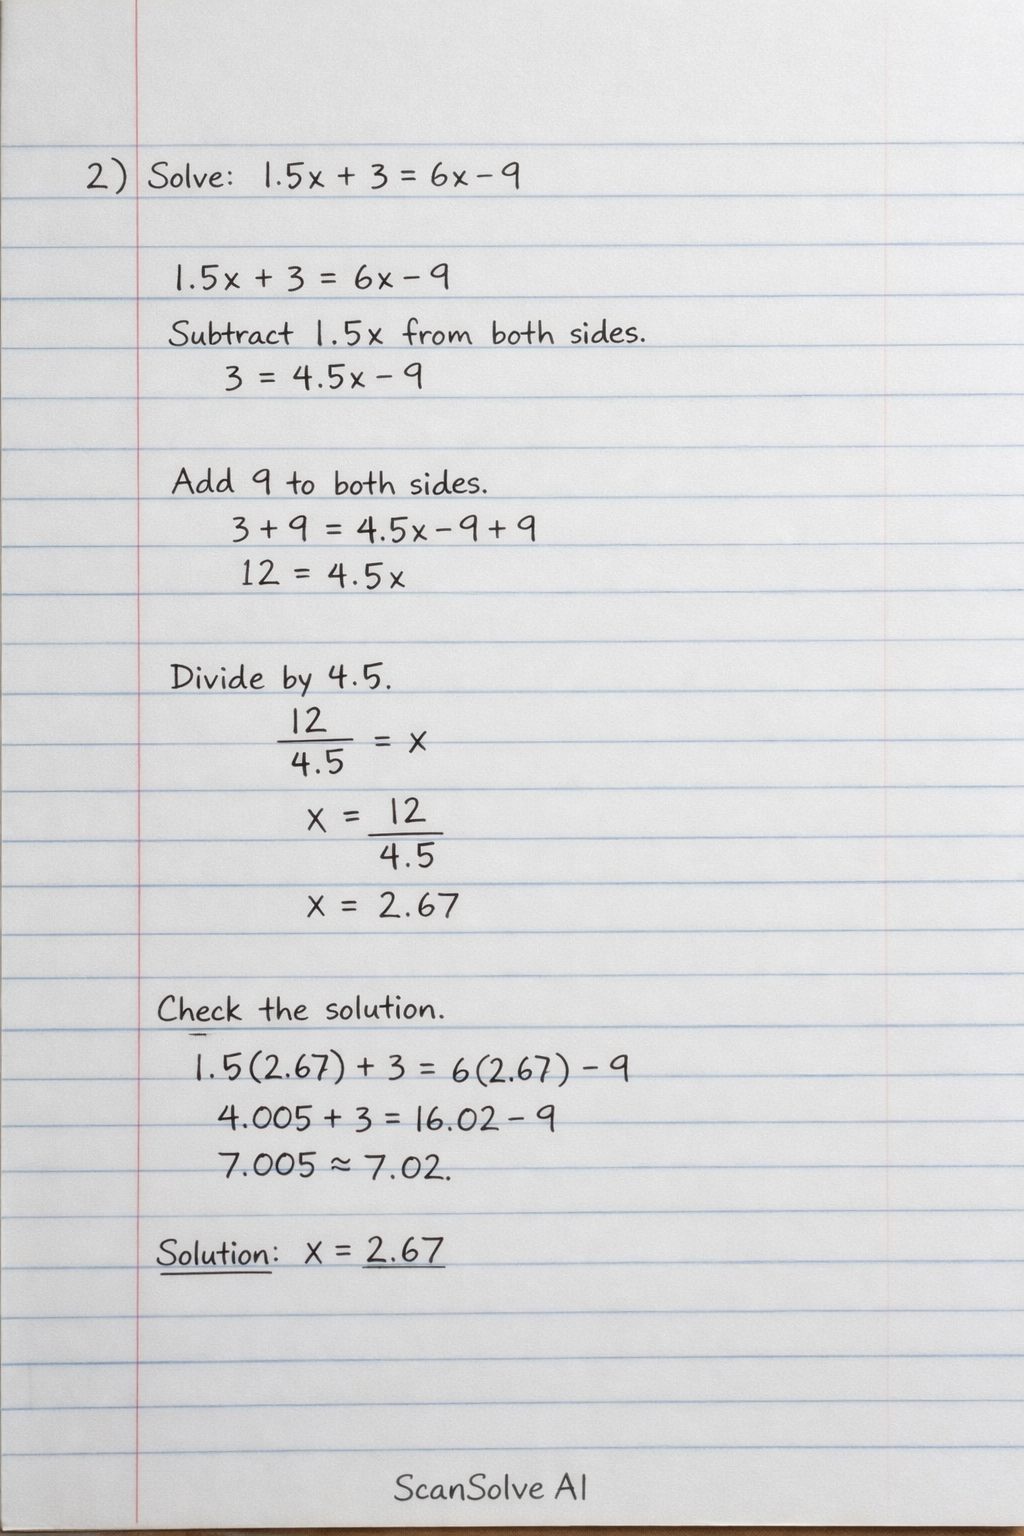 2) Solve: 1.5x + 3 = 6x - 9
1.5x + 3 = 6x - 9
Subtract 1.5x from both sides.
3 = 4.5x - 9
Add 9 to both sides.
3 + 9 = 4.5x - 9 + 9
12 = 4.5x
Divide by 4.5.
12
4.5
= x
x =
12
4.5
x = 2.67
Check the solution.
1.5(2.67) + 3 = 6(2.67) - 9
4.005 + 3 = 16.02 - 9
7.005 ≈ 7.02.
Solution: x = 2.67
ScanSolve AI